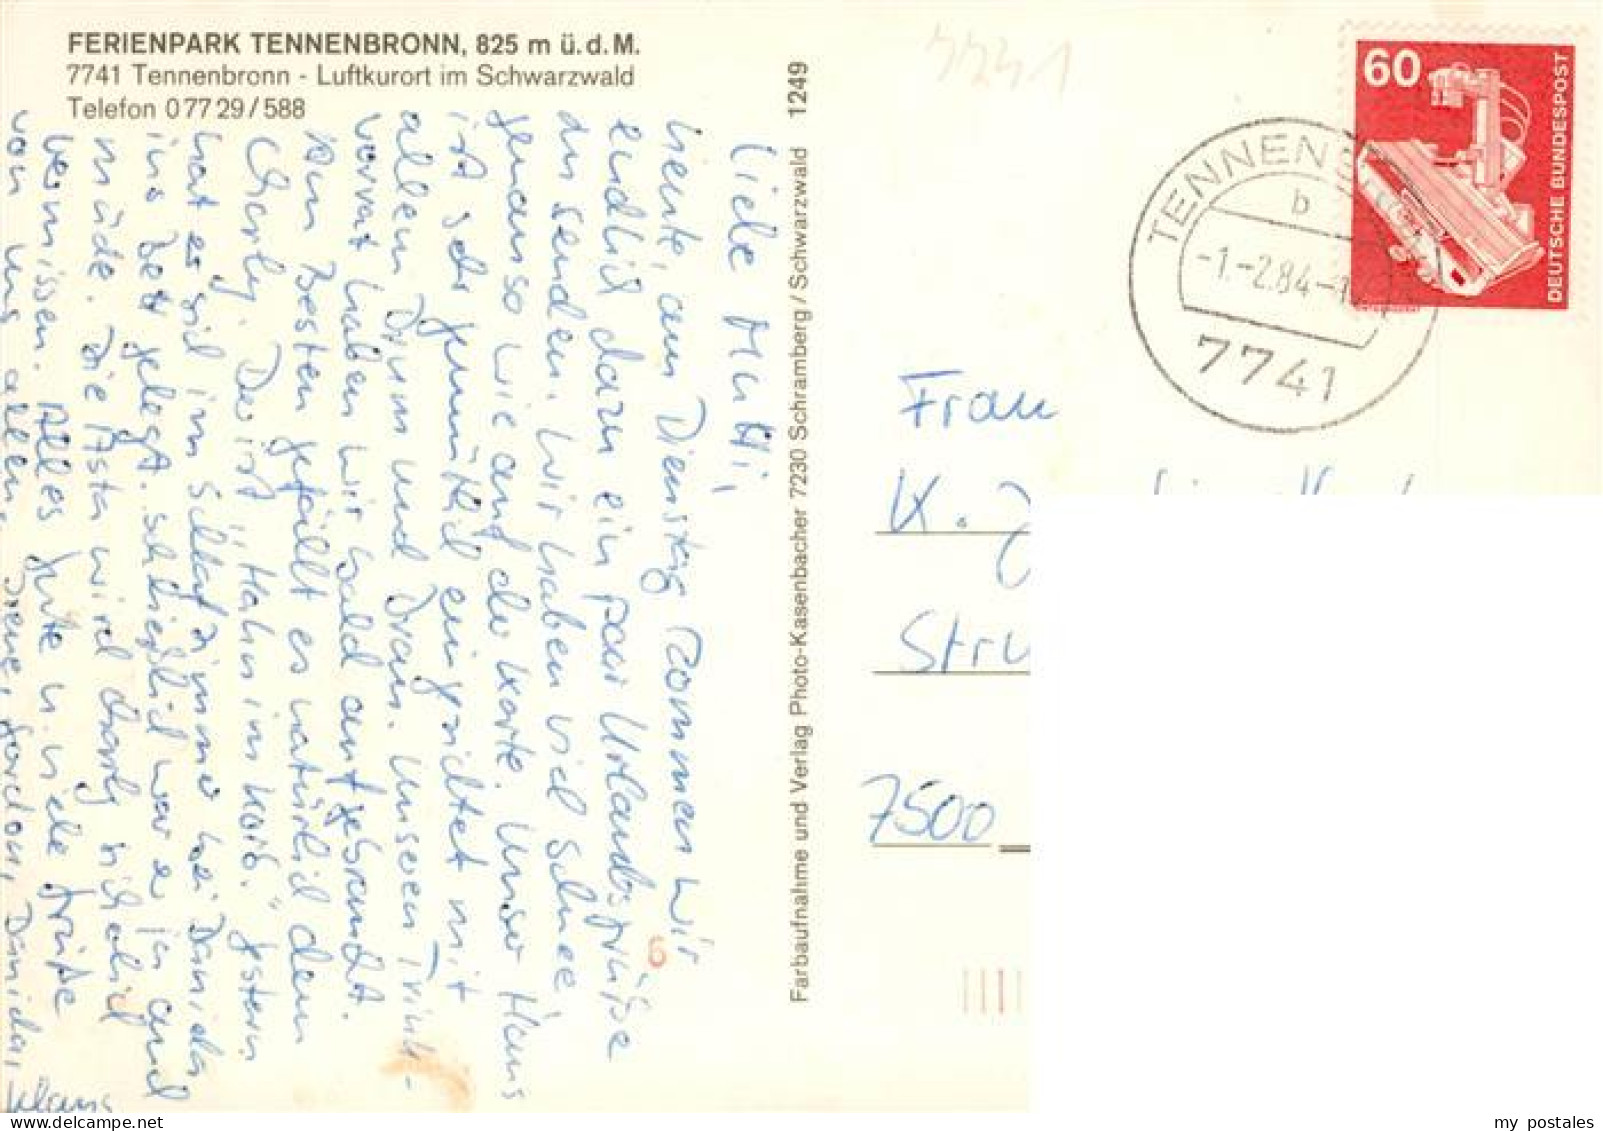 FERIENPARK TENNENBRONN, 825 m ü. d. M.
7741 Tennenbronn - Luftkurort im Schwarzwald
Telefon 0 77 29 / 588
Liebe Mutti,
heute, am Dienstag kommen wir
endlich dazu ein paar Urlaubsgrüße
zu senden. Wir haben viel Schnee,
genauso wie auf der Karte. Unser Haus
ist sehr gemütlich eingerichtet mit
allem Drum und Dran. Unseren Trink-
vorrat haben wir bald aufgebraucht.
Am Besten gefällt es natürlich dem
Charly. Der ist "Hahn im Korb." Gestern
hat er sich im Schlafzimmer bei Daniela
ins Bett gelegt. Schließlich war er ja auch
müde. Die Asta wird Charly sicherlich
vermissen. Alles Gute u. viele Grüße
von uns allen, Gordon, Daniela,
Klaus
Farbaufnahme und Verlag Photo-Kasenbacher 7230 Schramberg / Schwarzwald 1249
60
DEUTSCHE BUNDESPOST
TENNENB
b
-1.-2.84-1
7741
Frau
K.
7500
my postales